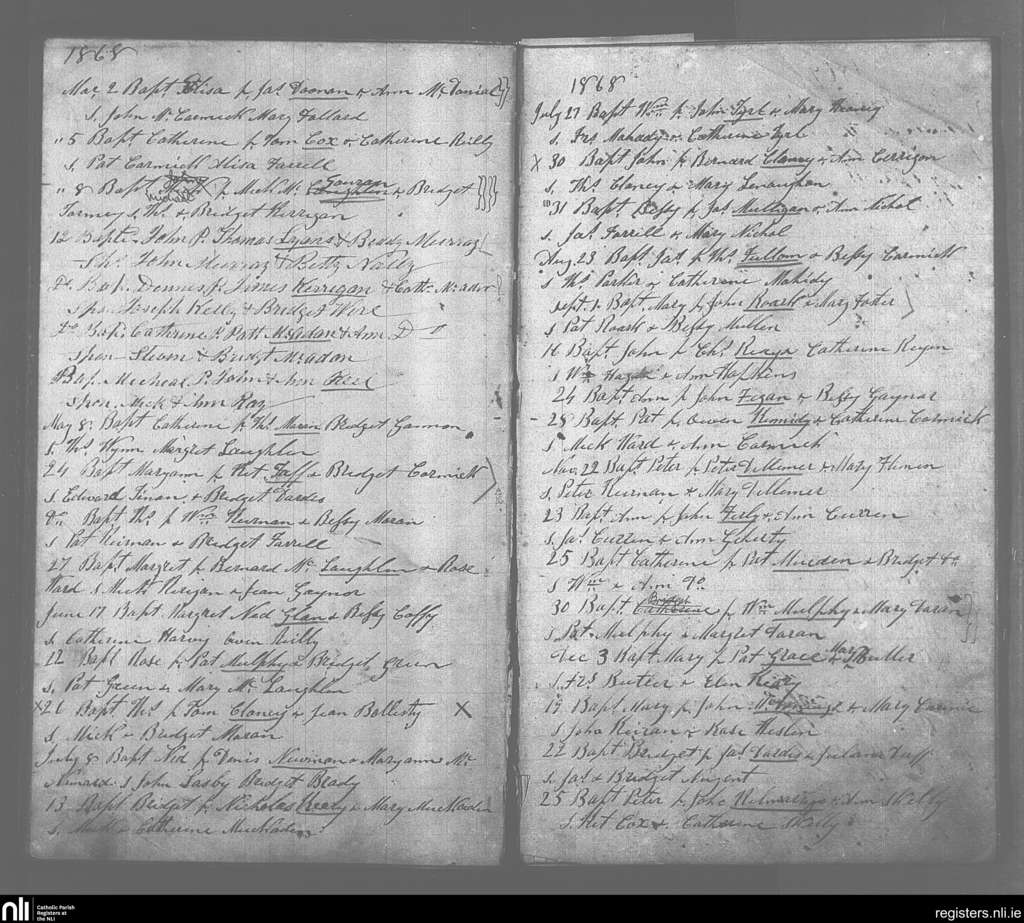 1868
Mar 2 Bapt Elisa p Jas Doonan & Ann McDanial
s. John McCormick Mary Fallard
" 5 Bapt Catherine p Tom Cox & Catherine Rielly
s. Pat Carmick Elisa Farrell
" 8 Bapt John Michael p Mick Mc Gouran & Bridget
Tormey s. Ths & Bridget Kerrigan
12 Bapt. John P. Thomas Lyons & Beady Murray
Sps. John Murray & Betty Nally
Do Bap. Dennis p. James Kerrigan & Cath. McAdor
spo. Joseph Kelly & Bridget Wire
do Bap. Catherine P. Patt. McAdan & Ann D
spon Steven & Bridgt McAdan
Bap. Micheal P. John & Ann Keel
spon. Mick & Ann Ray
May 8 Bapt Catherine p Ths Maran Bridget Gannon
s. Ths Wynn Margret Laughlin
24 Bapt Maryann p Kit Taff & Bridget Cormick
s. Edward Finan & Bridget Dardis
do Bapt Ths p Wm Keirnan & Bessy Maran
s Pat Keirnan & Bridget Farrell
27 Bapt Margret p Bernard Mc Laughlin & Rose
Ward s Mick Keligan & Jean Gaynor
June 17 Bapt Margret Ned Glan & Bessy Coffy
s. Catherine Harvey Owen Reilly
22 Bapt Rose p Pat Mulphy & Bridget Green
s. Pat Green & Mary Mc Laughlin
X 26 Bapt Ths p Tom Clancy & Jean Bollesty X
s. Mick & Bridget Maran
July 8 Bapt Ned p Denis Newman & Maryann Mc
Nimard s John Lasby Bridget Brady
13 Bapt Bridget p Nicholas Neary & Mary MucKadin
s. Mick & Catherine MucKaden
1868
July 27 Bapt Wm p John Tyrl & Mary
s. Frs Mahady & Catherine Tyrl
X 30 Bapt John p Bernard Clancy & Ann Cerrigan
s. Ths Clancy & Mary
31 Bapt Bessy p Jas Mulligan & Ann Nichol
s. Jas Farrell & Mary Nichol
Aug 23 Bapt Jas p Ths Fullom & Bessy Carmick
s Ths Parker & Catherine Mahidy
Sept 1 Bapt Mary p John Roark & Mary Foster
s Pat Roark & Bessy Mullen
16 Bapt John p Chs Reaya Catherine Keyen
s Wm & Ann Hopkins
24 Bapt Ann p John Fegan & Bessy Gaynor
28 Bapt Pat p Owen Kennidy & Catherine Cormick
s Mick Ward & Ann Carmick
Nov 22 Bapt Peter p Peter Dillemer & Mary Flinen
s. Peter Keirnan & Mary Dillemer
23 Bapt Ann p John Ferly & Ann Curren
s. Jas Curren & Ann Geherty
25 Bapt Catherine p Pat Murden & Bridget do
s Wm & Ann do.
30 Bapt Bridget p Wm Mulphy & Mary Daran
s Pat Mulphy & Margret Daran
Dec 3 Bapt Mary p Pat Grace Mary Butler
s. Frs Butler & Elen Keary
19 Bapt Mary p John & Mary
s John Keiran & Rose Heslin
22 Bapt Bridget p Jas Dardis & Juliann Duff
s. Jas & Bridget Nugent
25 Bapt Peter p John & Ann Skelly
s. Kit Cox & Catherine Skelly
nli
Catholic Parish
Registers at
the NLI
registers.nli.ie